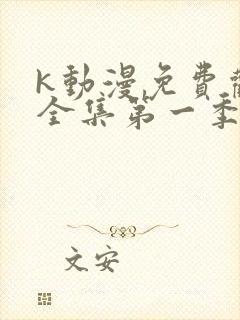 K動漫免費觀
全集第一季
文安